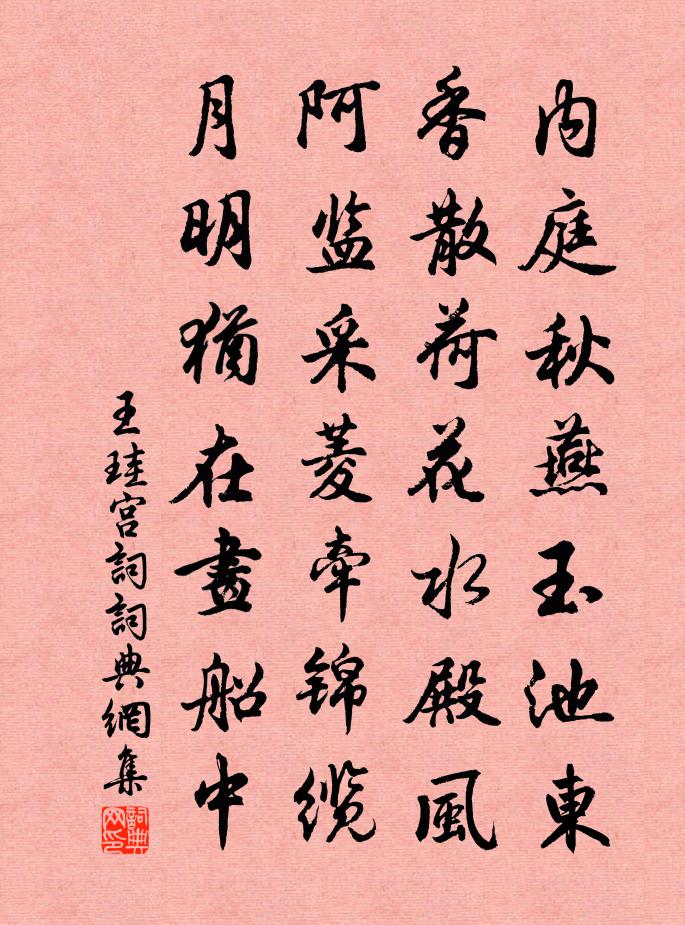 内庭秋燕玉池東
香散荷花水殿風
阿监采菱牵锦缆
月明猶在畫船中
王珪宫詞詞典網集
詞典网印